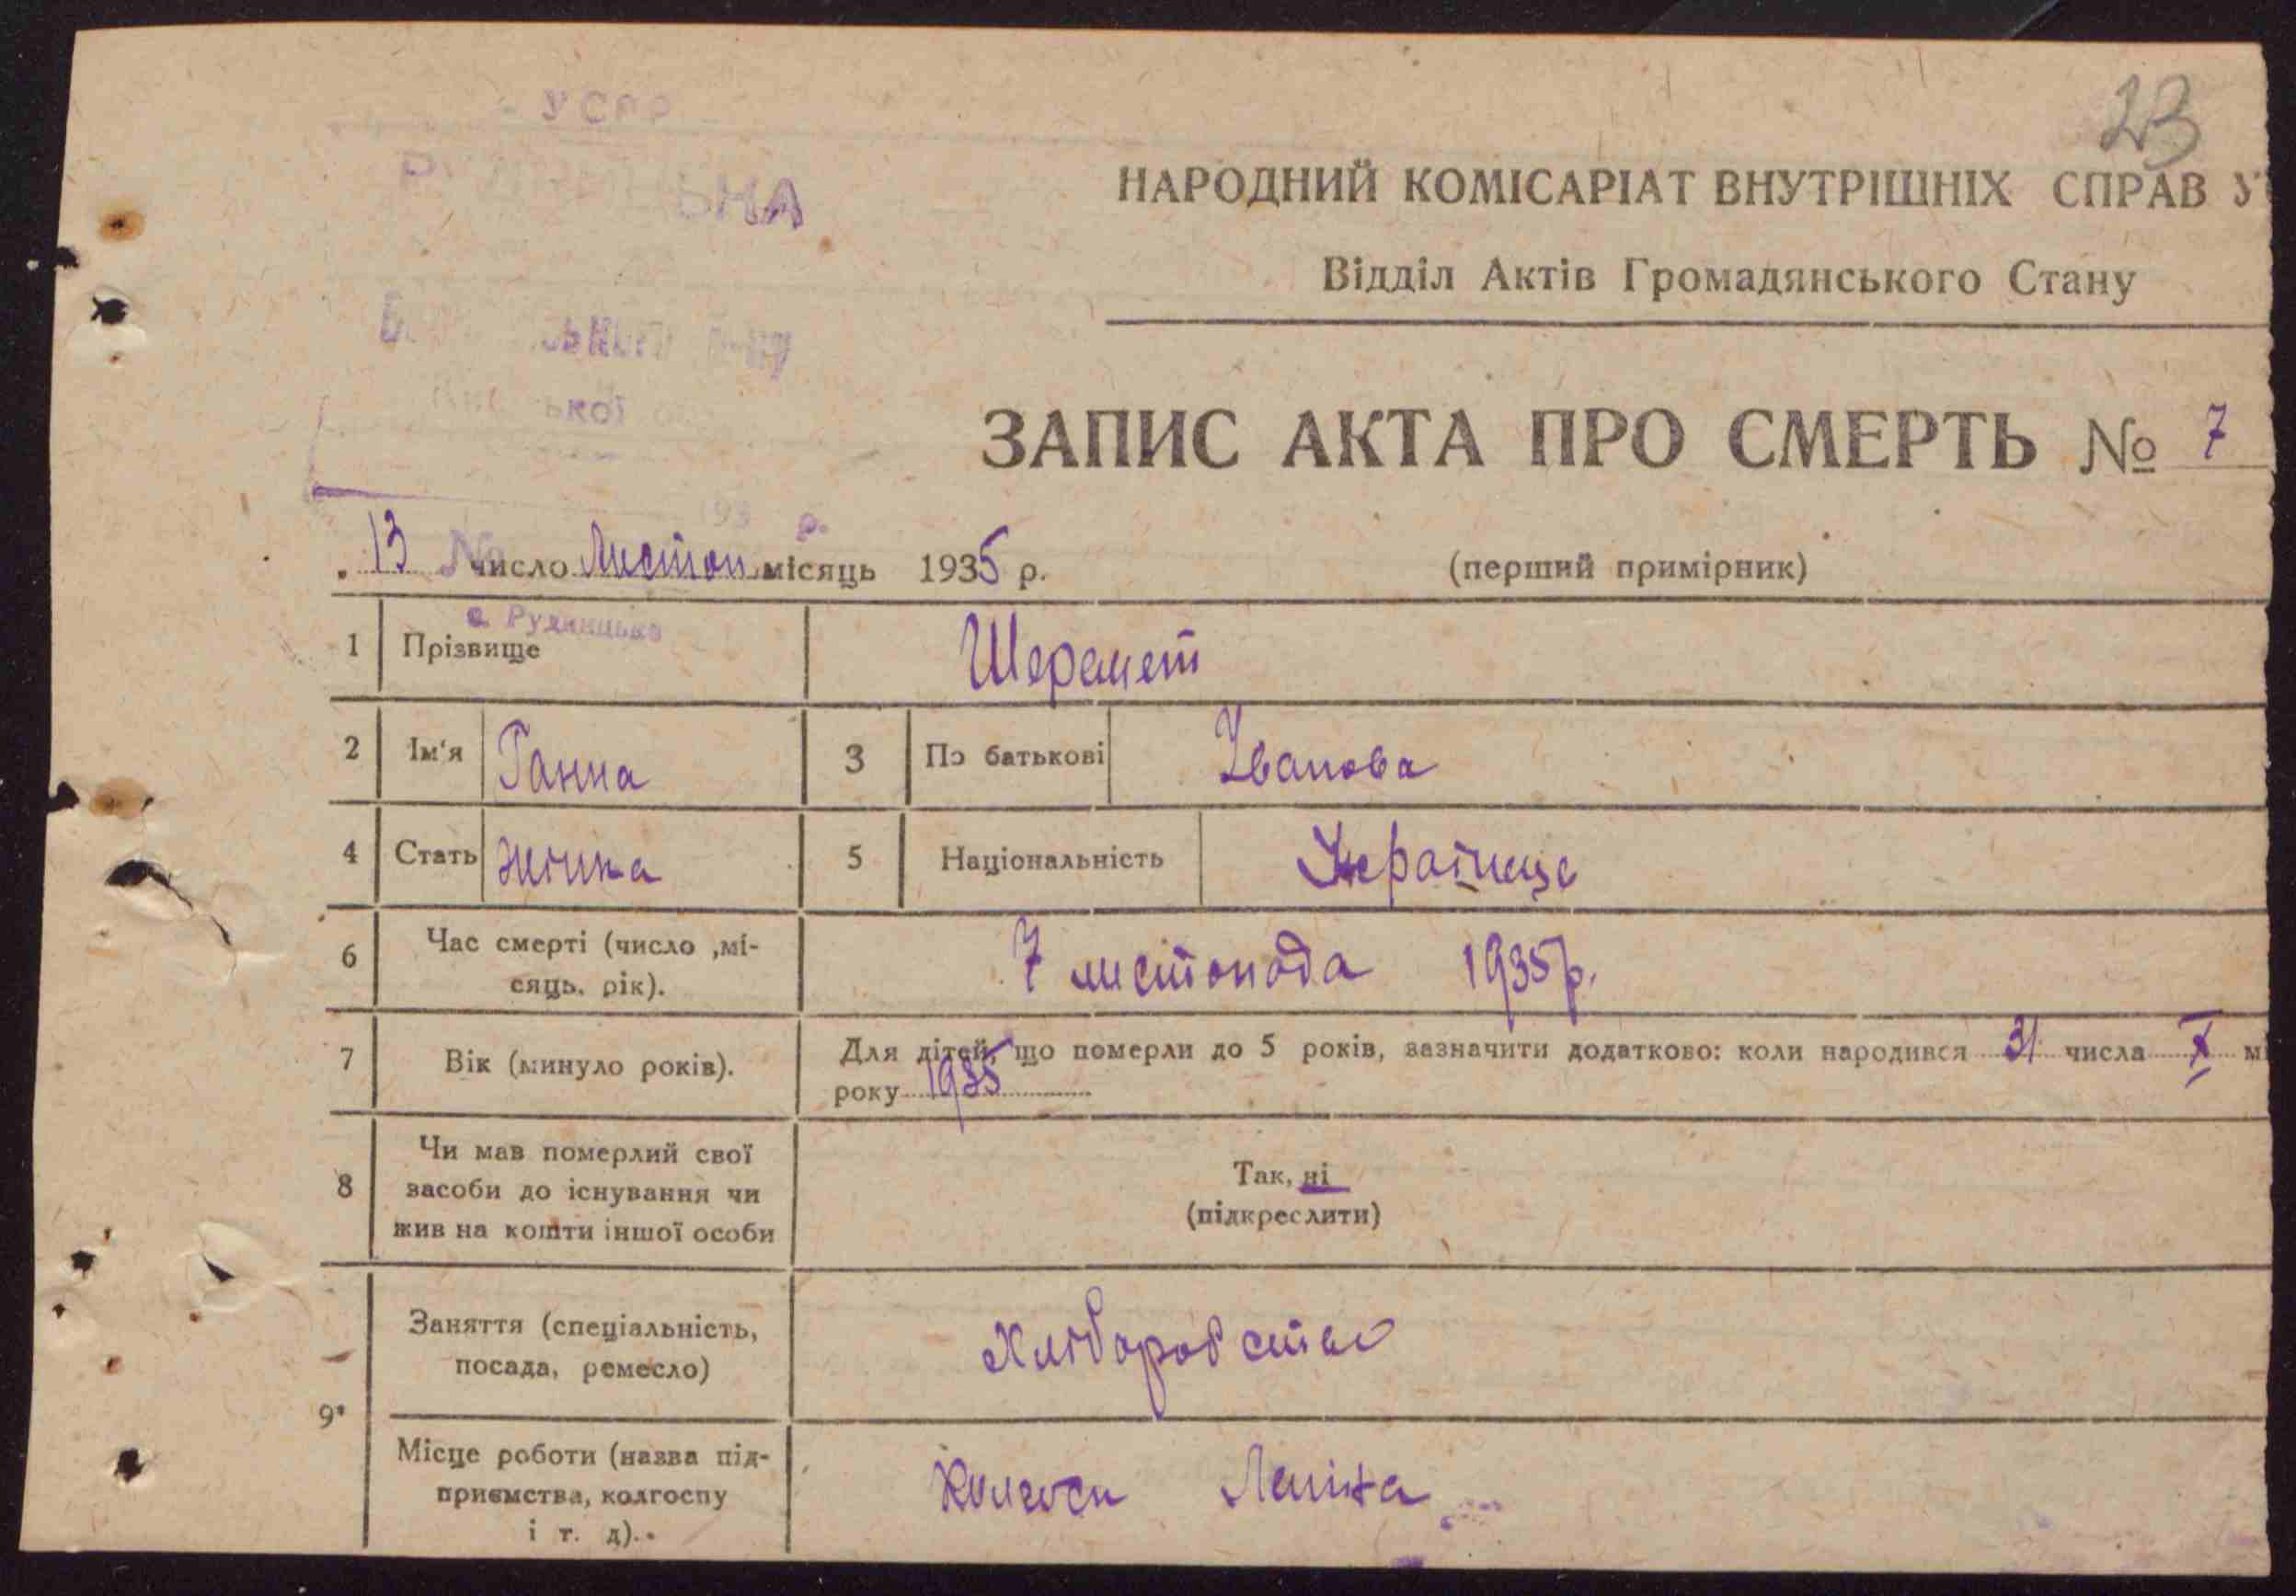 УСРР
23
НАРОДНИЙ КОМІСАРІАТ ВНУТРІШНІХ СПРАВ У
Відділ Актів Громадянського Стану
ЗАПИС АКТА ПРО СМЕРТЬ № 7
193 р.
13 число Листоп місяць 1935 р.
(перший примірник)
с. Рудницьке
1 Прізвище Шеремет
2 Ім'я Ганна 3 По батькові Іванова
4 Стать жінка 5 Національність Украінце
6 Час смерті (число ,мі-
сяць. рік).
7 листопада 1935 р.
7 Вік (минуло років).
Для дітей, що померли до 5 років, зазначити додатково: коли народився 31 числа X мі
року 1935
8 Чи мав померлий свої
засоби до існування чи
жив на кошти іншої особи
Так, ні
(підкреслити)
9
Заняття (спеціальність,
посада, ремесло)
Хліборобство
Місце роботи (назва під-
приємства, колгоспу
і т. д).
Колгосп Леніна